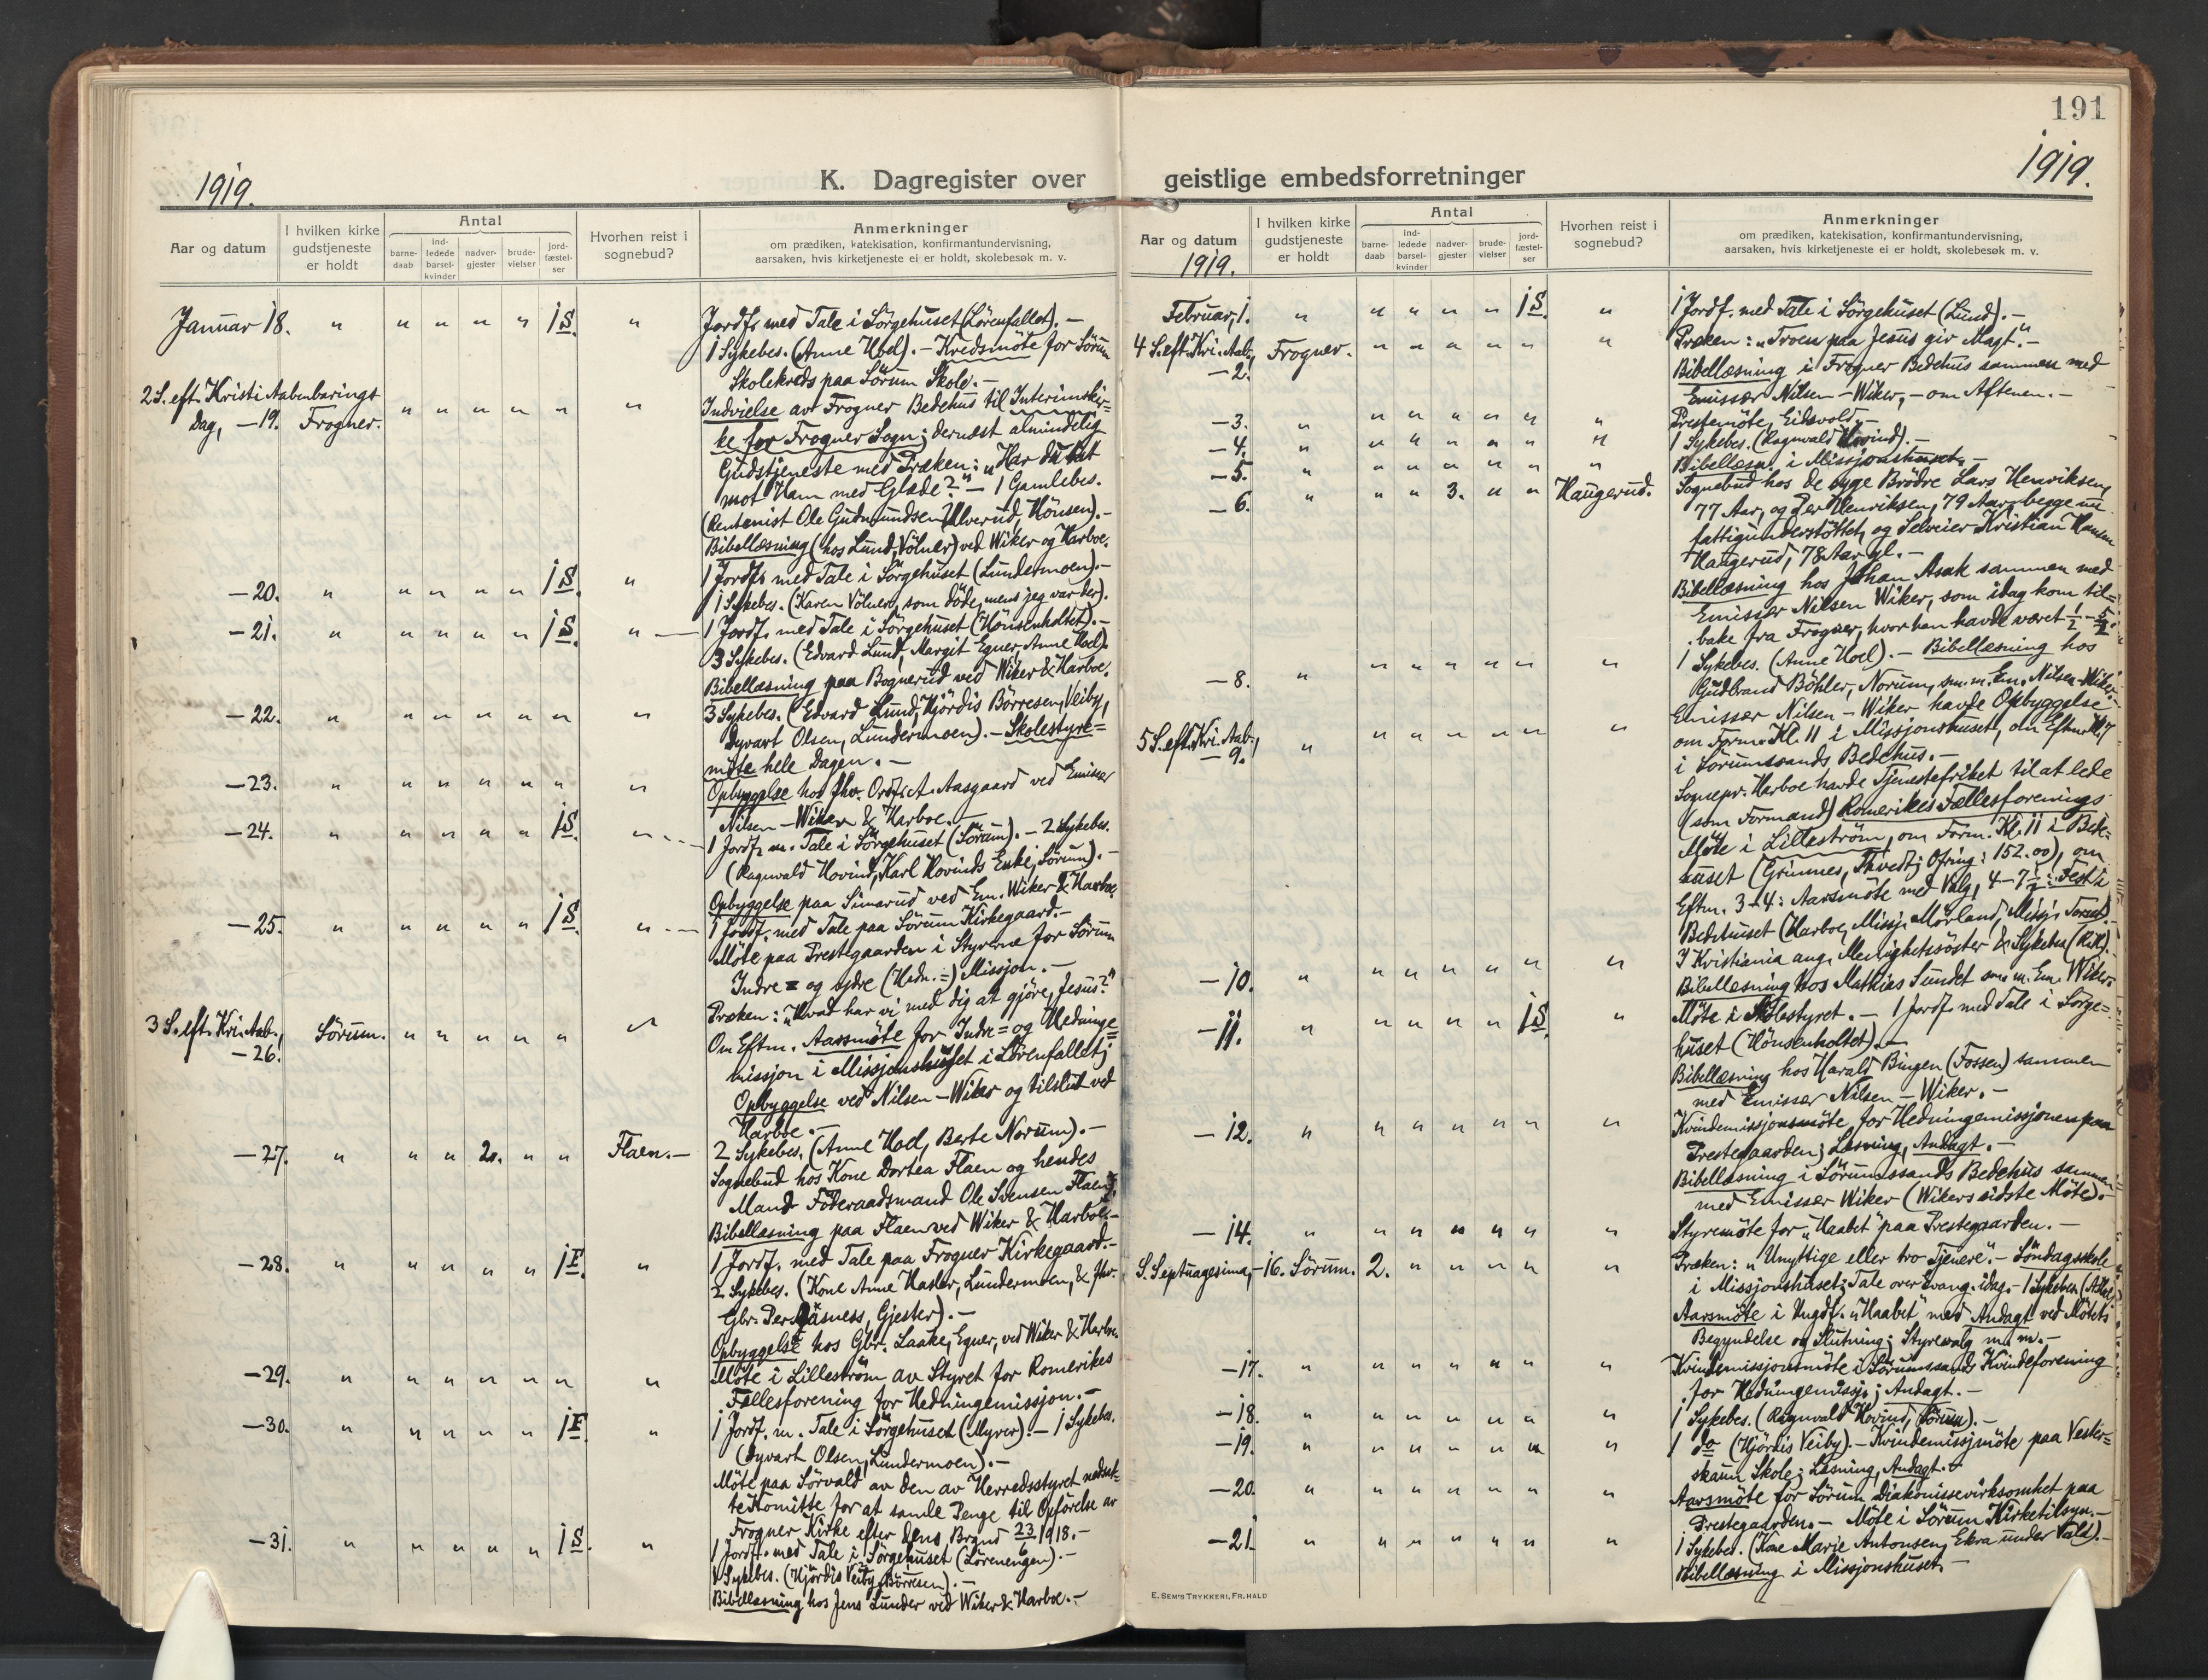 191
1919.
K. Dagregister over
geistlige embedsforretninger
1919.
Aar og datum
I hvilken kirke gudstjeneste er holdt
Antal
barne-daab
ind-ledede barsel-kvinder
nadver-gjester
brude-vielser
jord-fæstel-ser
Hvorhen reist i sognebud?
Anmerkninger
om prædiken, katekisation, konfirmantundervisning,
aarsaken, hvis kirketjeneste ei er holdt, skolebesøk m. v.
Januar 18. " " " " " 1 S. " Jordf. med Tale i Sörgehuset (Lörenfallet). –
1 Sykebes. (Anne Hoel). – Kredsmöte for Sörum
Skolekreds paa Sörum Skole. –
2 S. eft. Kristi Aabenbarings
Dag, – 19. Frogner. " " " " " " Indvielse av Frogner Bedehus til Interimskir=
ke for Frogner Sogn; dernæst almindelig
Gudstjeneste med Præken: „Har du tat
mot Ham med Glæde?" – 1 Gamlebes.
(Rentenist Ole Gudmundsen Ulverud, Hönsen). –
Bibellæsning (hos Lund, Völner) ved Wiker og Harboe.
– 20. " " " " " 1 S. " 1 Jordf. med Tale i Sörgehuset (Lundermoen). –
1 Sykebes. (Karen Völner, som döde, mens jeg var der).
– 21. " " " " " 1 S. " 1 Jordf. med Tale i Sörgehuset (Hönsenholtet). –
3 Sykebes. (Edvard Lund, Margit Egner, Anne Hoel).
Bibellæsning paa Bognerud ved Wiker & Harboe.
– 22. " " " " " " " 3 Sykebes. (Edvard Lund, Hjördis Börresen, Veiby,
Syvart Olsen, Lundermoen). – Skolestyre=
möte hele Dagen. –
– 23. " " " " " " " Opbyggelse hos fhv. Ordf. A. Aasgaard ved Emissær
Nilsen – Wiker & Harboe. –
– 24. " " " " " 1 S. " 1 Jordf. m. Tale i Sörgehuset (Sörum). – 2 Sykebes.
(Ragnvald Hovind, Karl Hovinds Enke, Sörum). –
Opbyggelse paa Simarud ved Em. Wiker & Harboe.
– 25. " " " " " 1 S. " 1 Jordf. med Tale paa Sörum Kirkegaard. –
Möte paa Prestegaarden i Styrerne for Sörum
Indre= og ydre (Hedn.=) Missjon. –
3 S. eft. Kri. Aab., Sörum. " " " " " " Præken: „Hvad har vi med dig at gjöre, Jesus?"
– 26. Om Eftm. Aarsmöte for Indre= og Hedninge=
missjon i Missjonshuset i Lörenfallet;
Opbyggelse ved Nilsen – Wiker og tilslut ved
Harboe. –
– 27. " " " 2. " " Flaen. – 2 Sykebes. (Anne Hoel, Berte Norum). –
Sognebud hos Kone Dortea Flaen og hendes
Mand Föderaadsmand Ole Svensen Flaen.
Bibellæsning paa Flaen ved Wiker & Harboe. –
– 28. " " " " " 1 F. " 1 Jordf. med Tale paa Frogner Kirkegaard. –
2 Sykebes. (Kone Anne Hasler, Lundermoen, & fhv.
Gbr. Per Aasness, Gjester). –
Opbyggelse hos Gbr. Laake, Egner, ved Wiker & Harboe.
– 29. " " " " " " " Möte i Lilleström av Styret for Romerikes
Fællesforening for Hedningemissjon. –
– 30. " " " " " 1 F. " 1 Jordf. m. Tale i Sörgehuset (Myrer). – 1 Sykebes.
(Syvart Olsen, Lundermoen). –
Möte paa Sörvald av den av Herredsstyret nedsat=
te Komitte for at samle Penge til Opförelse av
Frogner Kirke efter dens Brand 23/6 1918. –
– 31. " " " " " 1 S. " 1 Jordf. med Tale i Sörgehuset (Lörenengen). –
1 Sykebes. (Hjördis Veiby, Börresen). –
Bibellæsning hos Jens Lunder ved Wiker & Harboe. –
Aar og datum
1919.
I hvilken kirke gudstjeneste er holdt
Antal
barne-daab
ind-ledede barsel-kvinder
nadver-gjester
brude-vielser
jord-fæstel-ser
Hvorhen reist i sognebud?
Anmerkninger
om prædiken, katekisation, konfirmantundervisning,
aarsaken, hvis kirketjeneste ei er holdt, skolebesøk m. v.
Februar, 1. " " " " " 1 S. " 1 Jordf. med Tale i Sörgehuset (Lund). –
4 S. eft. Kri. Aab., Frogner. " " " " " " Præken: „Troen paa Jesus gir Magt." –
– 2. Bibellæsning i Frogner Bedehus sammen med
Emissær Nilsen – Wiker, – om Aftenen. –
– 3. " " " " " " " Prestemöte, Eidsvold. –
– 4. " " " " " " " 1 Sykebes. (Ragnvald Hovind). –
– 5. " " " " " " " Bibellæsn. i Missjonshuset. –
– 6. " " " 3. " " Haugerud. Sognebud hos de syge Brödre Lars Henriksen,
77 Aar, og Per Henriksen, 79 Aar, begge
fattigunderstöttet, og Selveier Kristian Hansen
Haugerud, 78 Aar gl. –
Bibellæsning hos Johan Asak sammen med
Emissær Nilsen Wiker, som idag kom til=
bake fra Frogner, hvor han havde været 1/2 – 5/2.
– 8. " " " " " " " 1 Sykebes. (Anne Hoel). – Bibellæsning hos
Gudbrand Böhler, Norum, sm. m. Em. Nilsen – Wiker.
5 S. eft. Kri. Aab., " " " " " " " Emissær Nilsen – Wiker havde Opbyggelse
– 9. om Form. Kl. 11 i Missjonshuset, om Eftm. Kl. 7
i Sörumssands Bedehus. –
Sognepr. Harboe havde Tjenestefrihet til at lede
(som Formand) Romerikes Fællesforenings
Möte i Lilleström, om Form. Kl. 11 i Bede=
huset (Grimnes, Thvedt; Ofring: 152.00), om
Eftm. 3–4: Aarsmöte med Valg, 4–7 1/2: Fest i
Bedehuset (Harboe, Missj. Mörland, Missj. ). –
– 10. " " " " " " " I Kristiania ang. Menighetssöster & Sykebes. (Rik.).
Bibellæsning hos Mathias Sundet sm. m. Em. Wiker.
– 11. " " " " " 1 S. " Möte i Skolestyret. – 1 Jordf. med Tale i Sörge=
huset (Hönsenholtet). –
Bibellæsning hos Harald Bingen (Fossen) sammen
med Emissær Nilsen – Wiker. –
– 12. " " " " " " " Kvindemissjonsmöte for Hedningemissjonen paa
Prestegaarden; Læsning, Andagt. –
Bibellæsning i Sörumssands Bedehus sammen
med Emissær Wiker (Wikers sidste Möte). –
– 14. " " " " " " " Styremöte for „Haabet" paa Prestegaarden. –
S. Septuagesima, – 16. Sörum. 2. " " " " " Præken: „Unyttige eller tro Tjenere". – Söndagsskole
i Missjonshuset; Tale over Evang. idag. – 1 Sykebes.
Aarsmöte i Ungdf. „Haabet" med Andagt ved Mötets
Begyndelse og Slutning; Styrevalg m. m. –
– 17. " " " " " " " Kvindemissjonsmöte i Sörumssands Kvindeforening
for Hedningemissj.; Andagt. –
– 18. " " " " " " " 1 Sykebes. (Ragnvald Hovind, Sörum). –
– 19. " " " " " " " 1 do (Hjördis Veiby). – Kvindemissjmöte paa Vester=
skaun Skole; Læsning, Andagt. –
– 20. " " " " " " " Aarsmöte for Sörum Diakonissevirksomhet paa
Prestegaarden. – Möte i Sörum Kirketilsyn. –
– 21. " " " " " " " 1 Sykebes. (Kone Marie Antonsen, Ekra under Vold). –
Bibellæsning i Missjonshuset. –
E. SEM'S TRYKKERI, FR.HALD